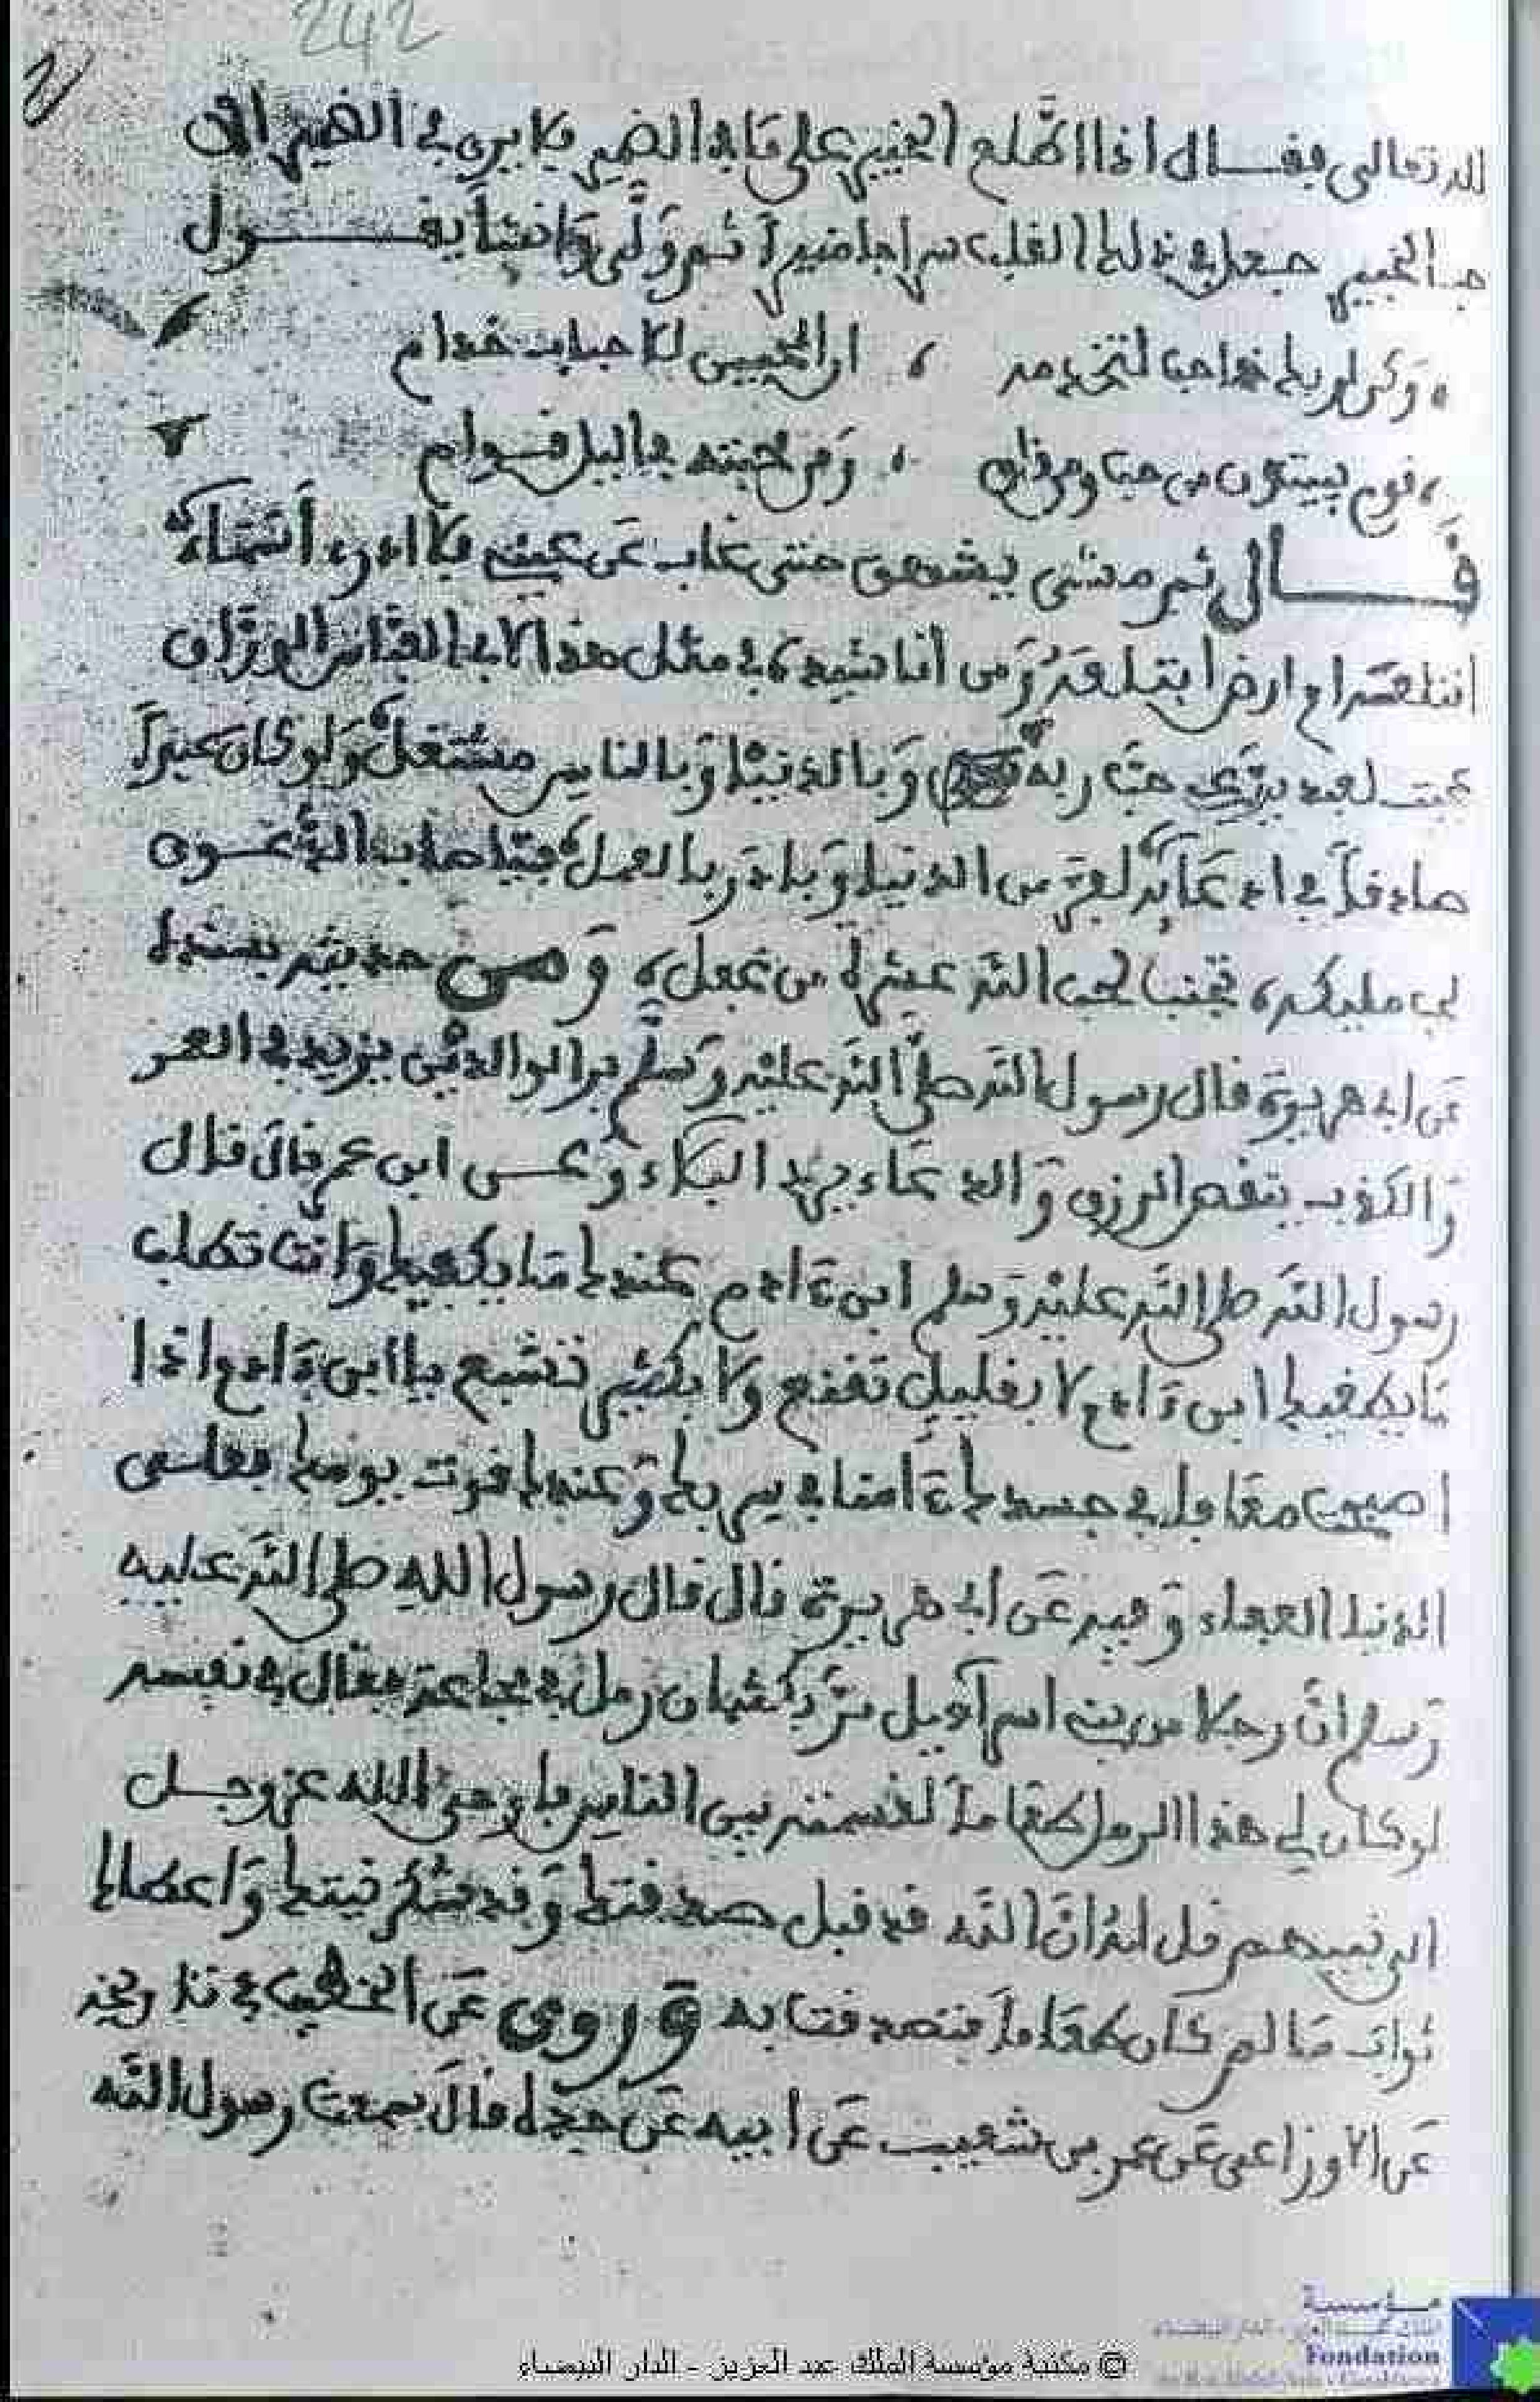 242
الله تعالى فقال اذا اطلع الخبير على ما في الضمير فلا يرى في الضمير الا
حب الخبير جعل في ذلك القلب سراجا منيرا ثم ولى وانشأ يقول
وكن لربك ذا حب لتخدمه ، ان المحبين للاحباب خدام
قوم يبيتون من حب ، ومن محبته في اليل قوام
قال ثم مشى حتى غاب عن عيني فلا ادري أسماء
ابتلعته ام ارض ابتلعته ومن أنا شيده في مثل هذا لابي العباس الوراق
عجبت لعبد يدعي حب ربه وبالدنيا وبالناس مشتغل ولو كان عبدا
صادقا في ادعائه لفر من الدنيا وبادر بالعمل فيا صاحب الدعوى
لحب مليكه ، تجنب لحب الله عشرة من عجل ، ومن حديثه بسنده
عن ابي هريرة قال رسول الله صلى الله عليه وسلم بر الوالدين يزيد في العمر
والكذب ينقص الرزق والدعاء يرد البلاء وعن ابن عمر قال قال
رسول الله صلى الله عليه وسلم ابن ءادم عندك ما يكفيك وانت تطلب
ما يطغيك ابن ءادم لا بقليل تقنع ولا بكثير تشبع يا ابن ءادم اذا
اصبحت معافا في جسدك ءامنا في سربك وعندك قوت يومك فعلى
الدنيا العفاء وفيه عن ابي هريرة قال قال رسول الله صلى الله عليه
وسلم ان رجلا من بني اسرآءيل مر بكثبان رمل في مجاعة فقال في نفسه
لو كان لي هذا الرمل طعاما لقسمته بين الناس فاوحى الله عز وجل
الى نبيهم قل له ان الله قد قبل صدقتك وقد شكر نيتك واعطاك
ثواب ما لم كان طعاما فتصدقت به وروى عن الخطيب في تاريخه
عن الاوزاعي عن عمر بن شعيب عن أبيه عن جده قال سمعت رسول الله
مؤسسة
Fondation
© مكتبة مؤسسة الملك عبد العزيز - الدار البيضاء